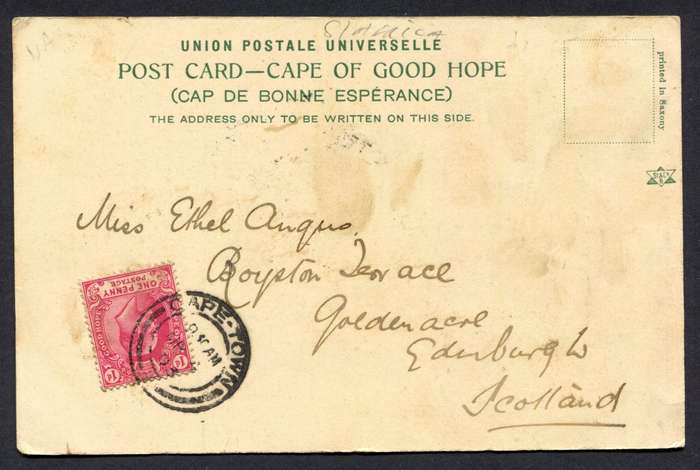 UNION POSTALE UNIVERSELLE
POST CARD—CAPE OF GOOD HOPE
(CAP DE BONNE ESPÉRANCE)
THE ADDRESS ONLY TO BE WRITTEN ON THIS SIDE.
printed in Saxony
Miss Ethel Angus,
Royston Terrace
Goldenacre
Edinburgh
Scotland
ONE PENNY
POSTAGE
GOOD HOPE
1D
1D
CAPE-TOWN
AM